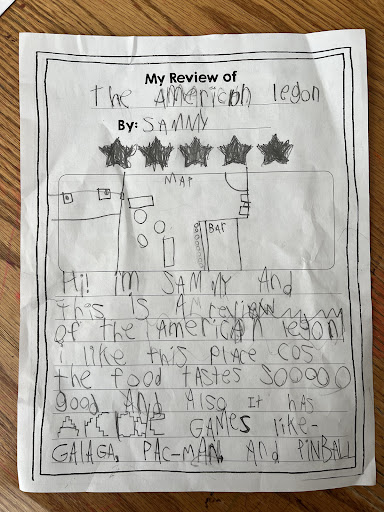 My Review of
the American legon
By: SAMMY
MAP
BAr
Hi! im SAMMY And
this is A review
of the American legon
i like this place cos
the food tastes SOOOOO
good And Also it hAs
ArcADE GAMES like-
GALAGA, PAC-MAN, And PINBALL